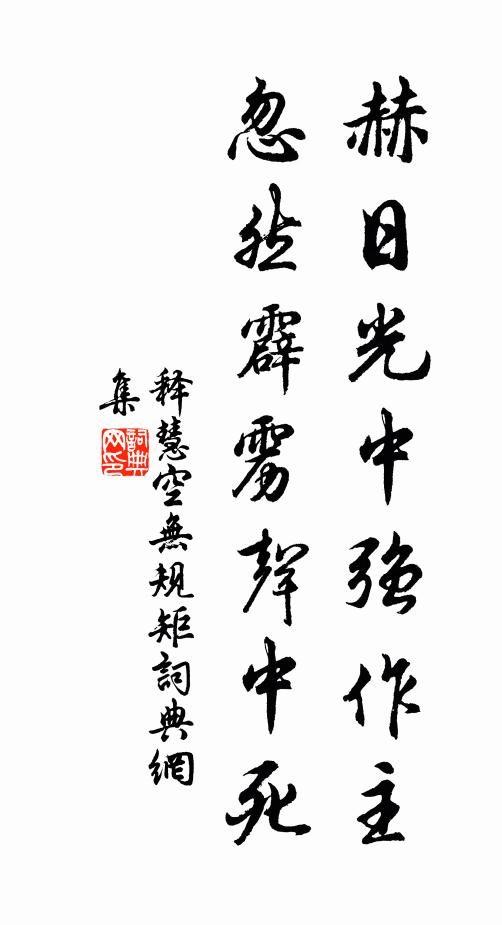 赫日光中強作主
忽然霹雳聲中死
释慧空無規矩詞典網
集
詞典网印